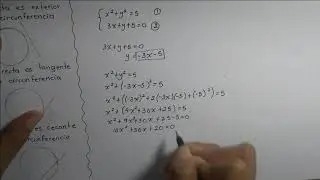 recta es exterior
circunferencia
recta es tangente
a circunferencia
es secante
cunferencia
x²+y²=5 ①
3x+y+5=0 ②
3x+y+5=0
y=-3x-5
x²+y²=5
x²+(-3x-5)²=5
x²+((-3x)²+2(-3x)(-5)+(-5)²=5
x²+(9x²+30x+25)=5
x²+9x²+30x+25-5=0
10x²+30x+20=0